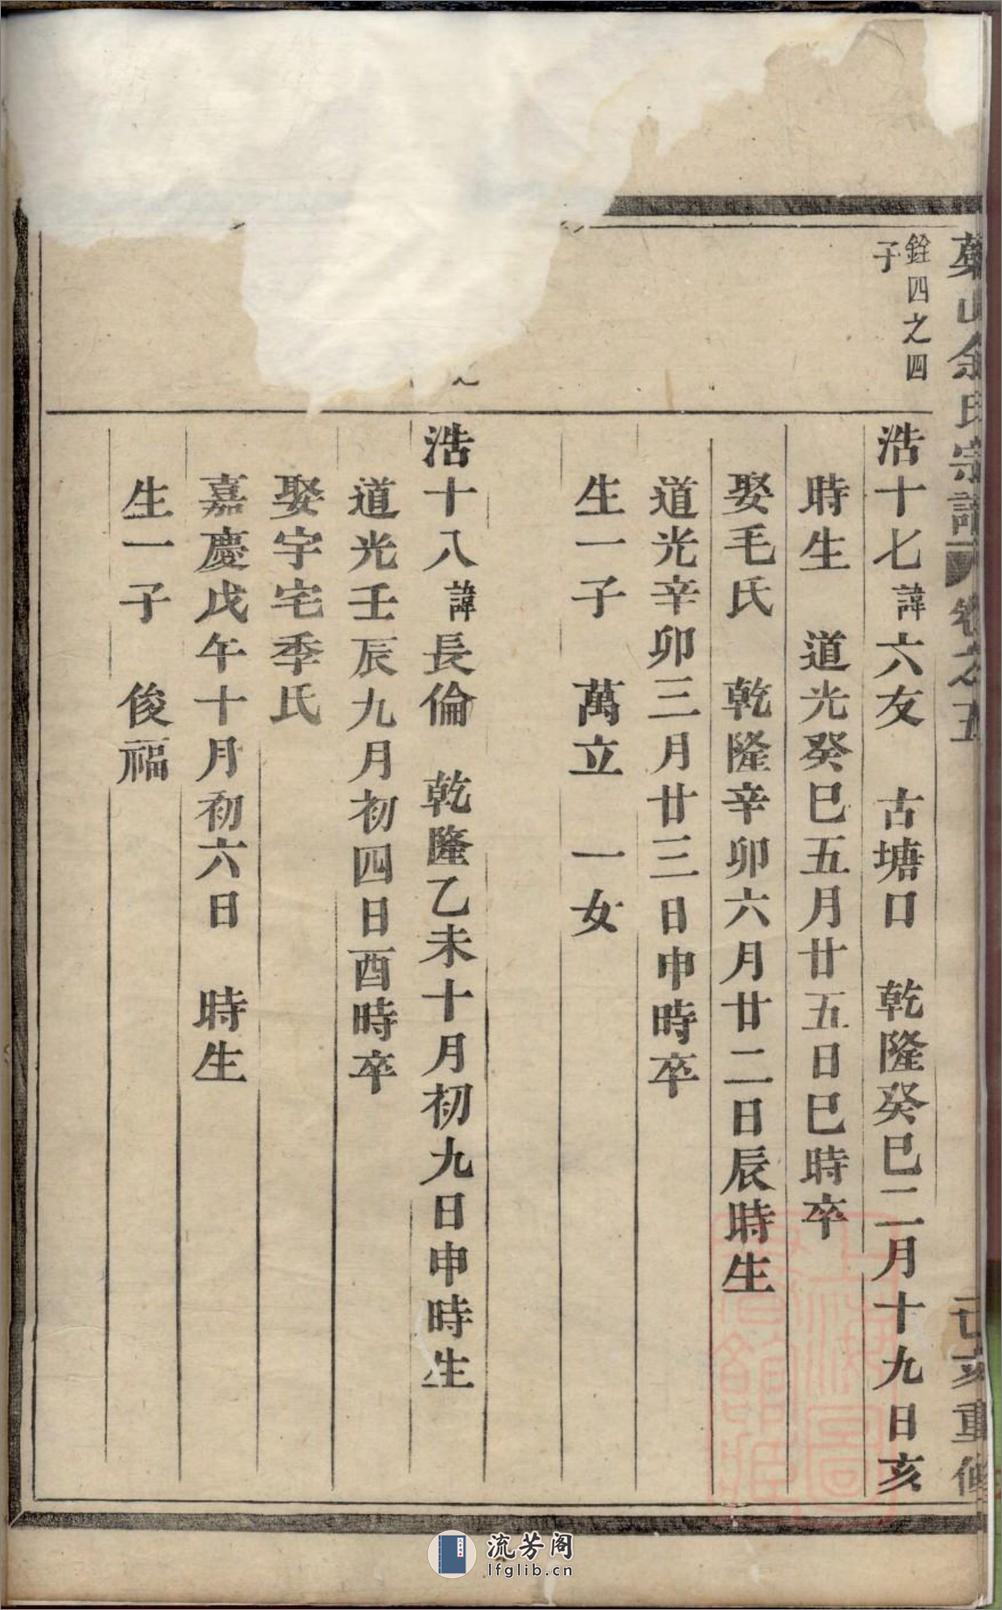 余氏宗譜 卷之五 重修
銓四之四
子
浩十七諱六友 古塘口 乾隆癸巳二月十九日亥
時生 道光癸巳五月廿五日巳時卒
娶毛氏 乾隆辛卯六月廿二日辰時生
道光辛卯三月廿三日申時卒
生一子 萬立 一女
浩十八諱長倫 乾隆乙未十月初九日申時生
道光壬辰九月初四日酉時卒
娶宇宅季氏
嘉慶戊午十月初六日 時生
生一子 俊福
上海圖書館藏
流芳阁
lfglib.cn